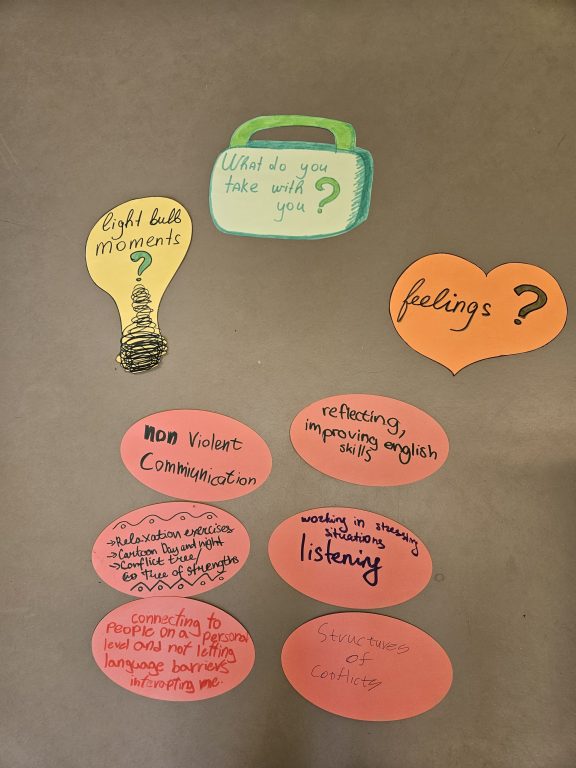 What do you
take with
you ?
light bulb
moments
?
feelings ?
non Violent
Commiunication
reflecting,
improving english
skills
→Relaxation exercises
→Cartoon Day and night
→Conflict tree/
Tree of strengths
working in stressing
situations
listening
connecting to
people on a personal
level and not letting
language barriers
interapting me.
Structures
of
Conflicts